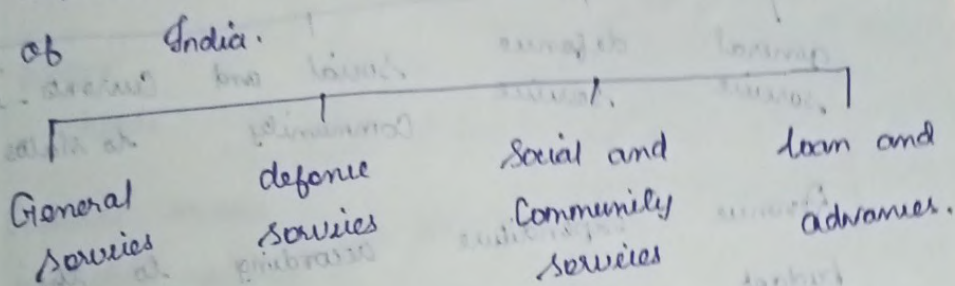 of India.
General services
defence services
Social and Community services
loan and advances.